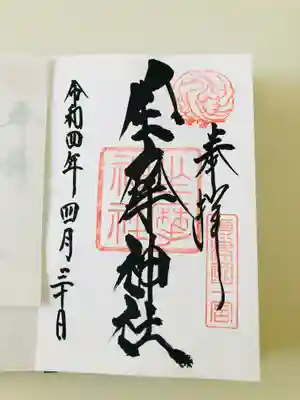 奉拝
坐摩神社
令和四年四月三十日